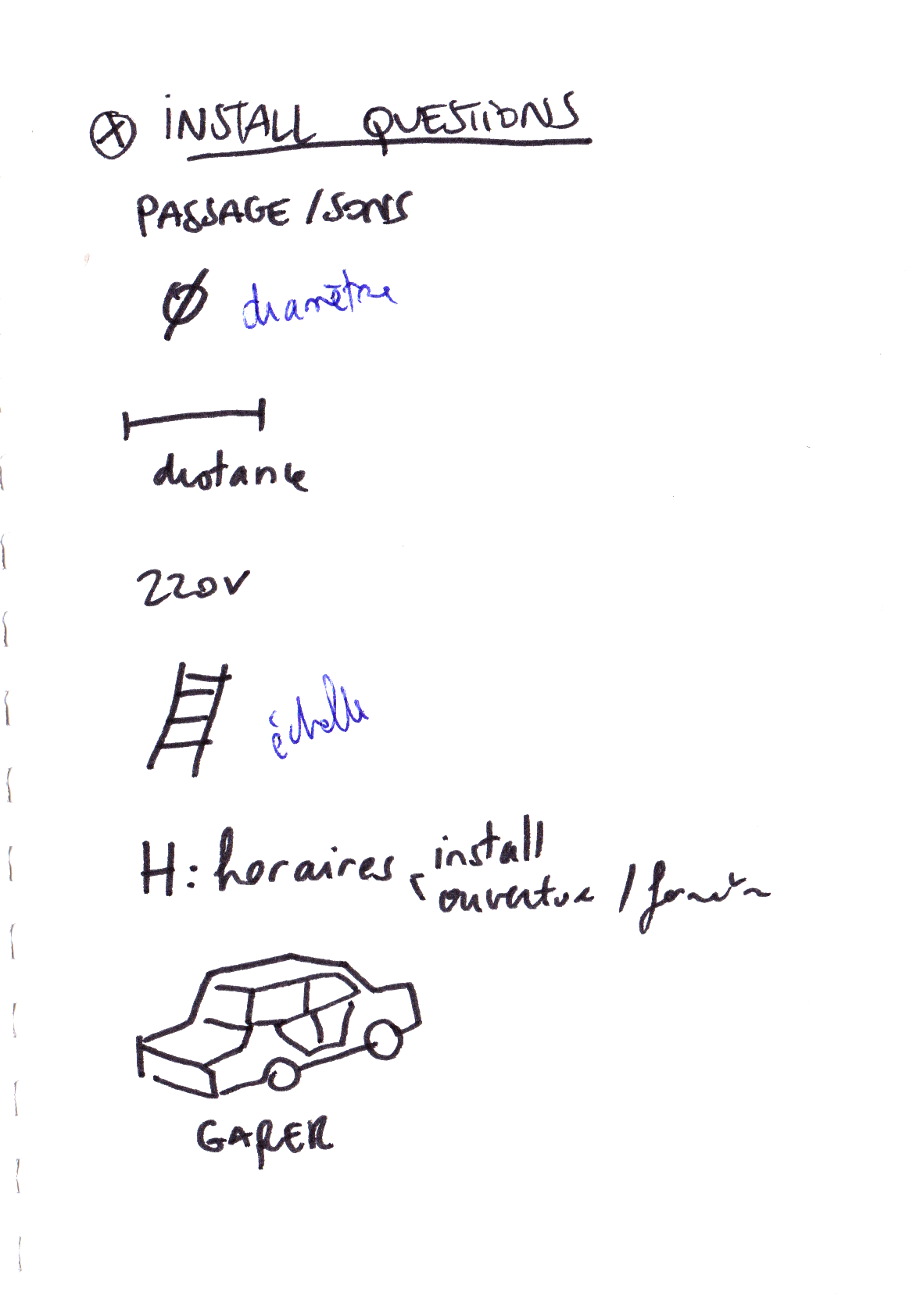 INSTALL QUESTIONS
PASSAGE / SONS
Ø diamètre
distance
220V
échelle
H: horaires install
ouverture /
GARER